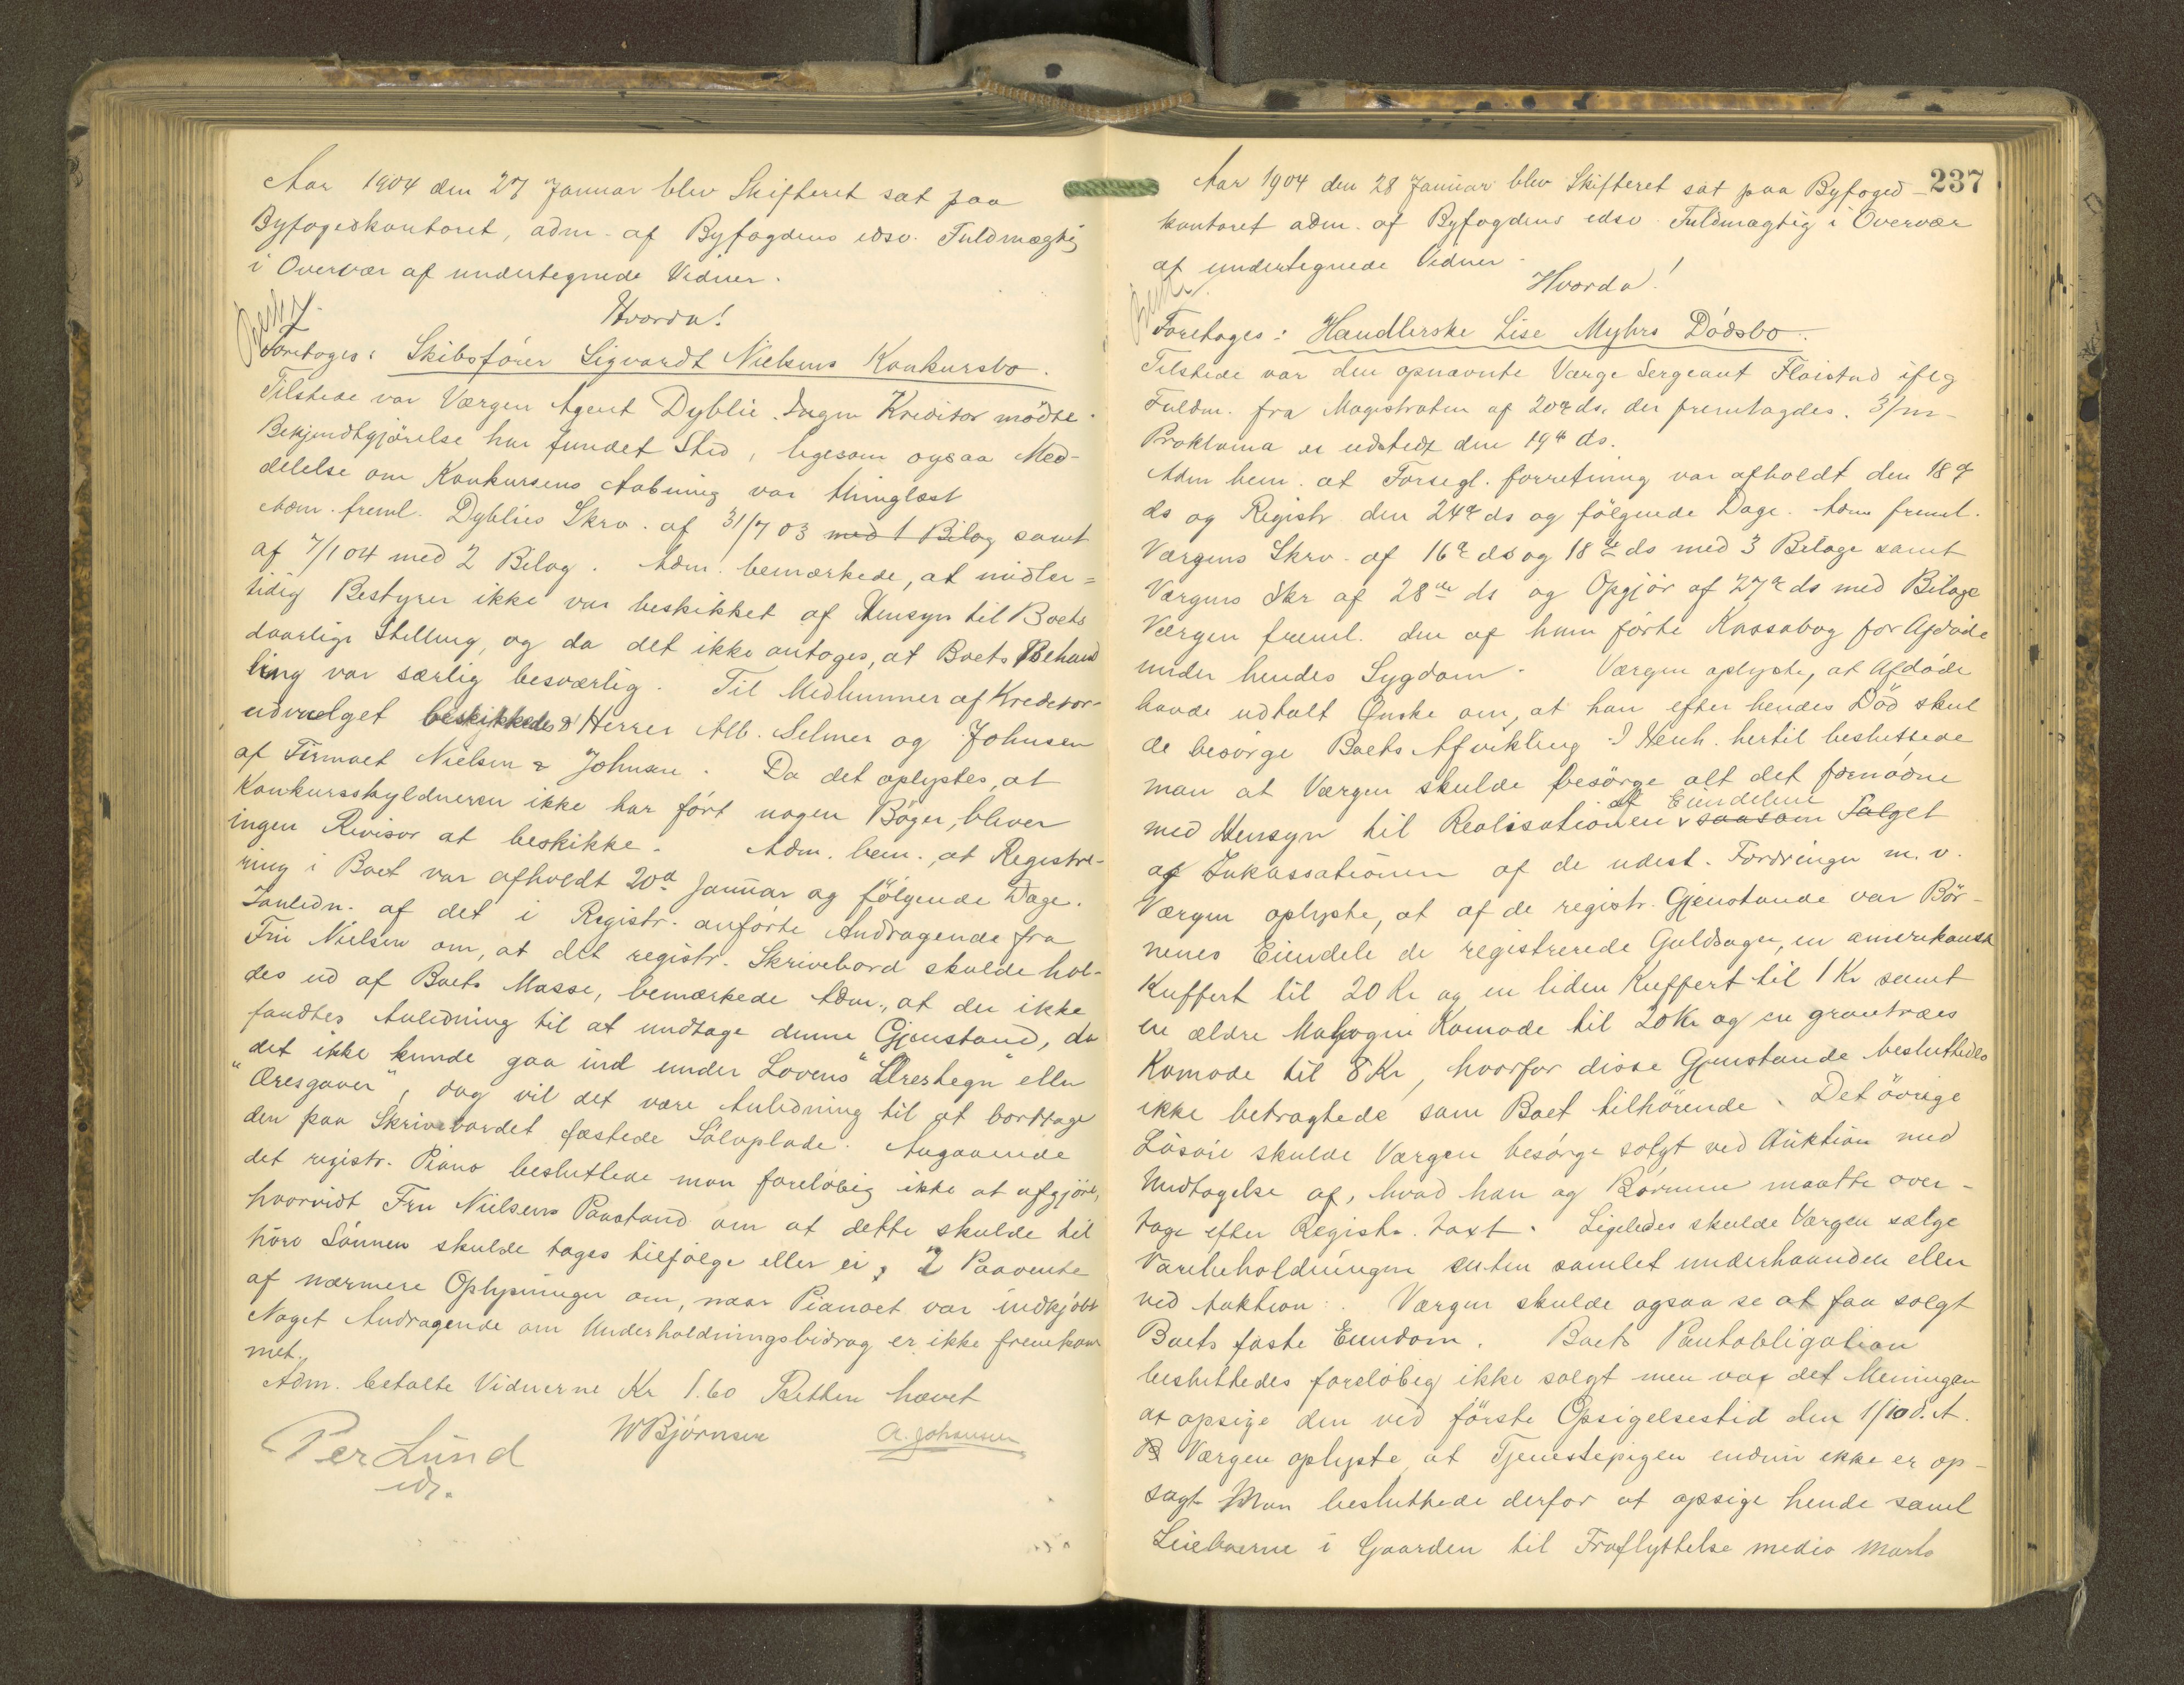 Aar 1904 den 27 Januar blev Skifteret sat paa
Byfogedkontoret, adm. af Byfogdens edsv. Fuldmægtig
i Overvær af undertegnede Vidner.
Hvorda!
Foretoges: Skibsfører Sigvardt Nielsens Konkursbo.
Tilstede var Værgen Agent Dyblie. Ingen Kreditor mødte.
Bekjendtgjörelse har fundet Sted, ligesom ogsaa Med-
delelse om Konkursens Aabning var thinglæst
Adm. freml. Dyblies Skrv. af 31/7 03 med 1 Bilag samt
af 7/1 04 med 2 Bilag. Adm. bemærkede, at midler=
tidig Bestyrer ikke var beskikket af Hensyn til Boets
daarlige Stilling, og da det ikke antoges, at Boets Behand
ling var særlig besværlig. Til Medlemmer af Kreditor-
udvalget beskikkedes Herrer Alb. Selmer og Johnsen
af Firmaet Nielsen & Johnsen. Da det oplystes, at
Konkursskyldneren ikke har ført nogen Böger, bliver
ingen Revisor at beskikke. Adm. bem., at Registre-
ring i Boet var afholdt 20d Januar og fölgende Dage.
I anledn. af det i Registr. anførte Andragende fra
Fru Nielsen om, at det registr. Skrivebord skulde hol-
des ud af Boets Masse, bemærkede Adm., at der ikke
fandtes Anledning til at undtage denne Gjenstand, da
det ikke kunde gaa ind under Lovens "Ærestegn" eller
"Æresgaver", dog vil det være Anledning til at borttage
den paa Skrivebordet fæstede Sölvplade. Angaaende
det registr. Piano besluttede man foreløbig ikke at afgjöre,
hvorvidt Fru Nielsens Paastand om at dette skulde til
höre Sønnen skulde tages tilfølge eller ei, i Paavente
af nærmere Oplysninger om, naar Pianoet var indkjöbt
Noget Andragende om Underholdningsbidrag er ikke fremkom
met.
Adm. betalte Vidnerne Kr 1.60 Retten hævet
Per Lund W Bjørnsen A. Johansen
eds.
237
Aar 1904 den 28 Januar blev Skifteret sat paa Byfoged-
kontoret adm. af Byfogdens edsv. Fuldmægtig i Overvær
af undertegnede Vidner.
Hvorda!
Foretoges: Handlerske Lise Myhrs Dödsbo.
Tilstede var den opnævnte Værge Sergeant Fløistad iflg
Fuldm. fra Magistraten af 20d ds. der fremlagdes. 3/m-
Proklama er udstedt den 19d ds.
Adm bem. at Forsegl. forretning var afholdt den 18d
ds og Registr den 24d ds og fölgende Dage. Adm freml.
Værgens Skrv. af 16d ds og 18de ds med 3 Bilage samt
Værgens Skr af 28de ds og Opgjör af 27d ds med Bilage
Værgen freml. den af ham förte Kassabog for Afdøde
under hendes Sygdom. Værgen oplyste, at Afdøde
havde udtalt Ønske om, at han efter hendes Död skul
de besörge Boets Afvikling. I Henh. hertil besluttede
man at Værgen skulde besörge alt det fornødne
af Eiendelene
med Hensyn til Realisationen saasom Salget
af Inkassationen af de udest. Fordringer m. v.
Værgen oplyste, at af de registr. Gjenstande var Bör-
nenes Eiendele de registrerede Guldsager, en amerikansk
Kuffert til 20 Kr og en liden Kuffert til 1 Kr samt
en ældre Mahogni Komode til 20 Kr og en grantræes
Komode til 8 Kr, hvorfor disse Gjenstande besluttedes
ikke betragtede som Boet tilhörende. Det övrige
Lösøie skulde Værgen besörge solgt ved Auktion med
Undtagelse af, hvad han og Børnene maatte over-
tage efter Registr. taxt. Ligeledes skulde Værgen sælge
Varebeholdningen enten samlet underhaanden eller
ved Auktion. Værgen skulde ogsaa se at faa solgt
Boets faste Eiendom. Boets Pantobligation
besluttedes foreløbig ikke solgt men var det Meningen
at opsige den ved förste Opsigelsestid den 1/10 d. A.
Værgen oplyste, at Tjenestepigen endnu ikke er op-
sagt. Man besluttede derfor at opsige hende samt
Leieboerne i Gaarden til Fraflyttelse medio Marts